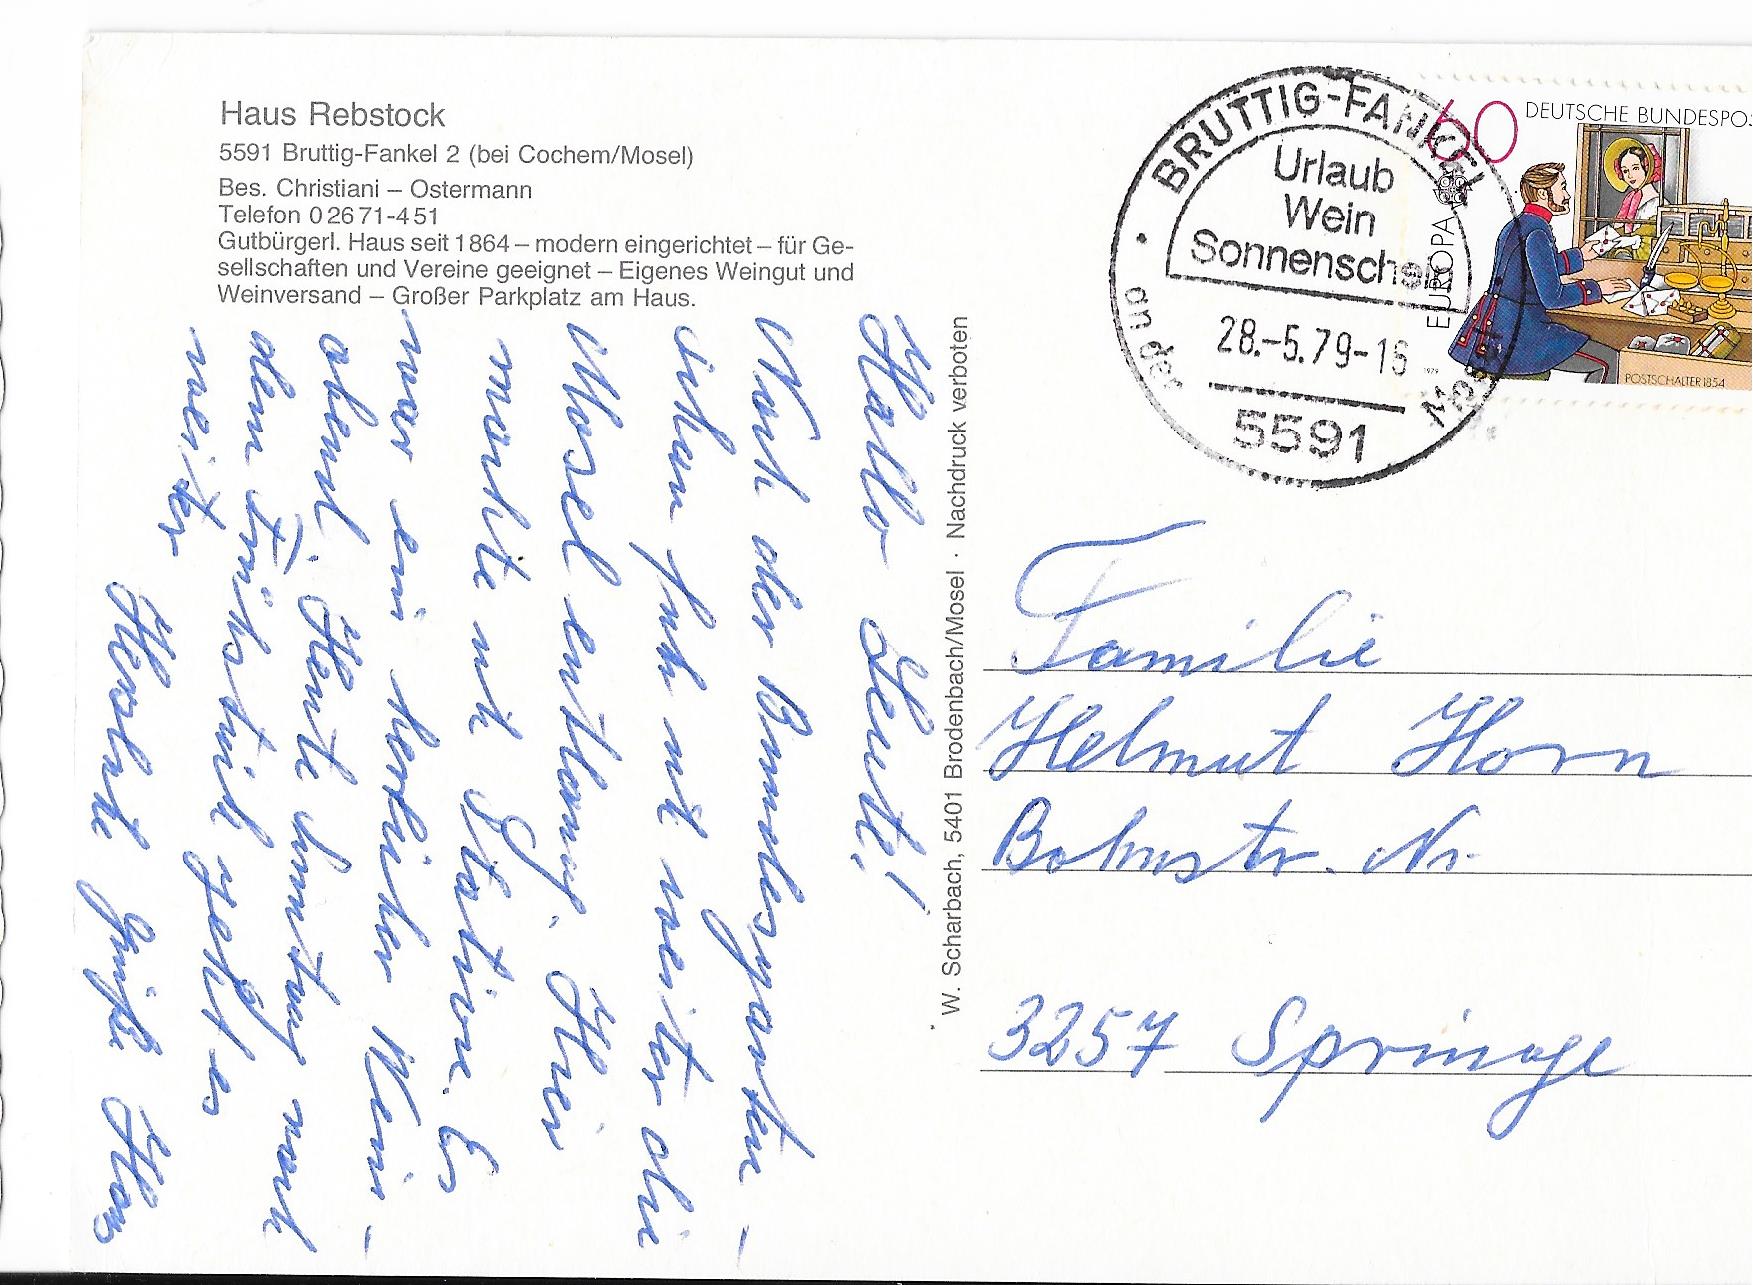 Haus Rebstock
5591 Bruttig-Fankel 2 (bei Cochem/Mosel)
Bes. Christiani – Ostermann
Telefon 0 26 71-4 51
Gutbürgerl. Haus seit 1864 – modern eingerichtet – für Ge-
sellschaften und Vereine geeignet – Eigenes Weingut und
Weinversand – Großer Parkplatz am Haus.
Hallo Leute!
Nach der Bundesgarten-
schau fuhr ich weiter die
Mosel entlang. Hier
machte ich Station. Es
war ein herrlicher Wein-
abend. Heute Sonntag nach
dem Frühstück geht es
weiter
Herzliche Grüße
W. Scharbach, 5401 Brodenbach/Mosel · Nachdruck verboten
BRUTTIG-FANKEL
Urlaub
Wein
Sonnenschein
28.-5.79-16
an der Mosel
5591
60 DEUTSCHE BUNDESPOS
EUROPA
1979
POSTSCHALTER 1854
Familie
Helmut Horn
Nr.
3257 Springe